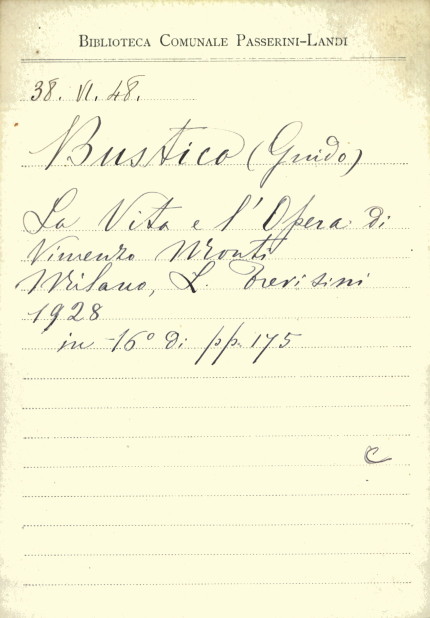 BIBLIOTECA COMUNALE PASSERINI-LANDI
38. VI. 48.
Bustico (Guido)
La Vita e l'Opera di
Vincenzo Monti
Milano, L. Trevisini
1928
in -16° di pp. 175
C